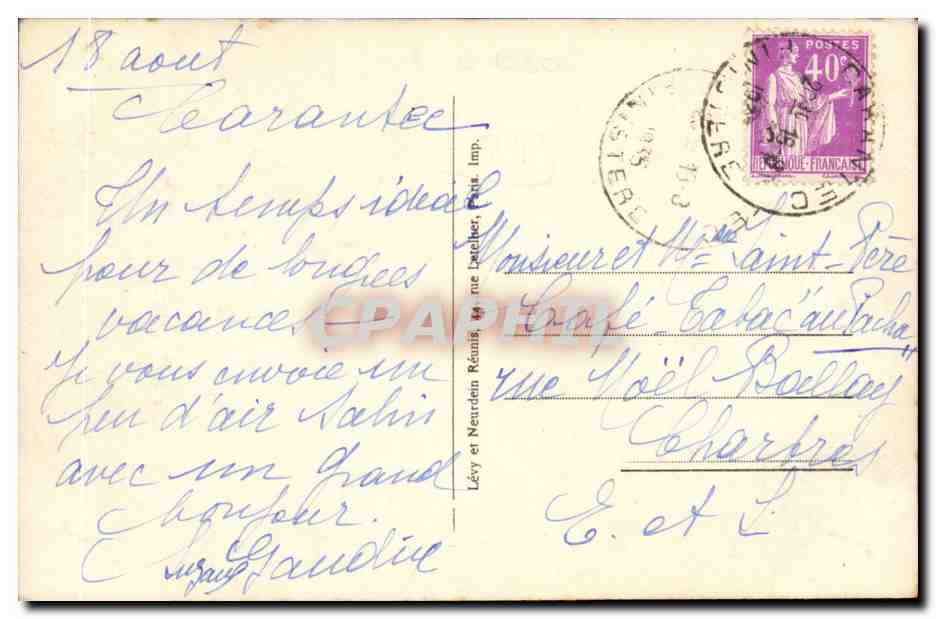 18 aout
Carantec
Un temps idéal
pour de longues
vacances
Je vous envoie un
peu d'air salin
avec un grand
bonjour.
Gaudin
Lévy et Neurdein Réunis, 44, rue Letellier, Paris. Imp.
POSTES
40c
REPUBLIQUE-FRANCAISE
FINISTERE
FINISTERE
Monsieur et Mme Saint-Père
Café-Tabac "au Pacha"
rue Noël Ballay
Chartres
E. et L.
CPAPHIL